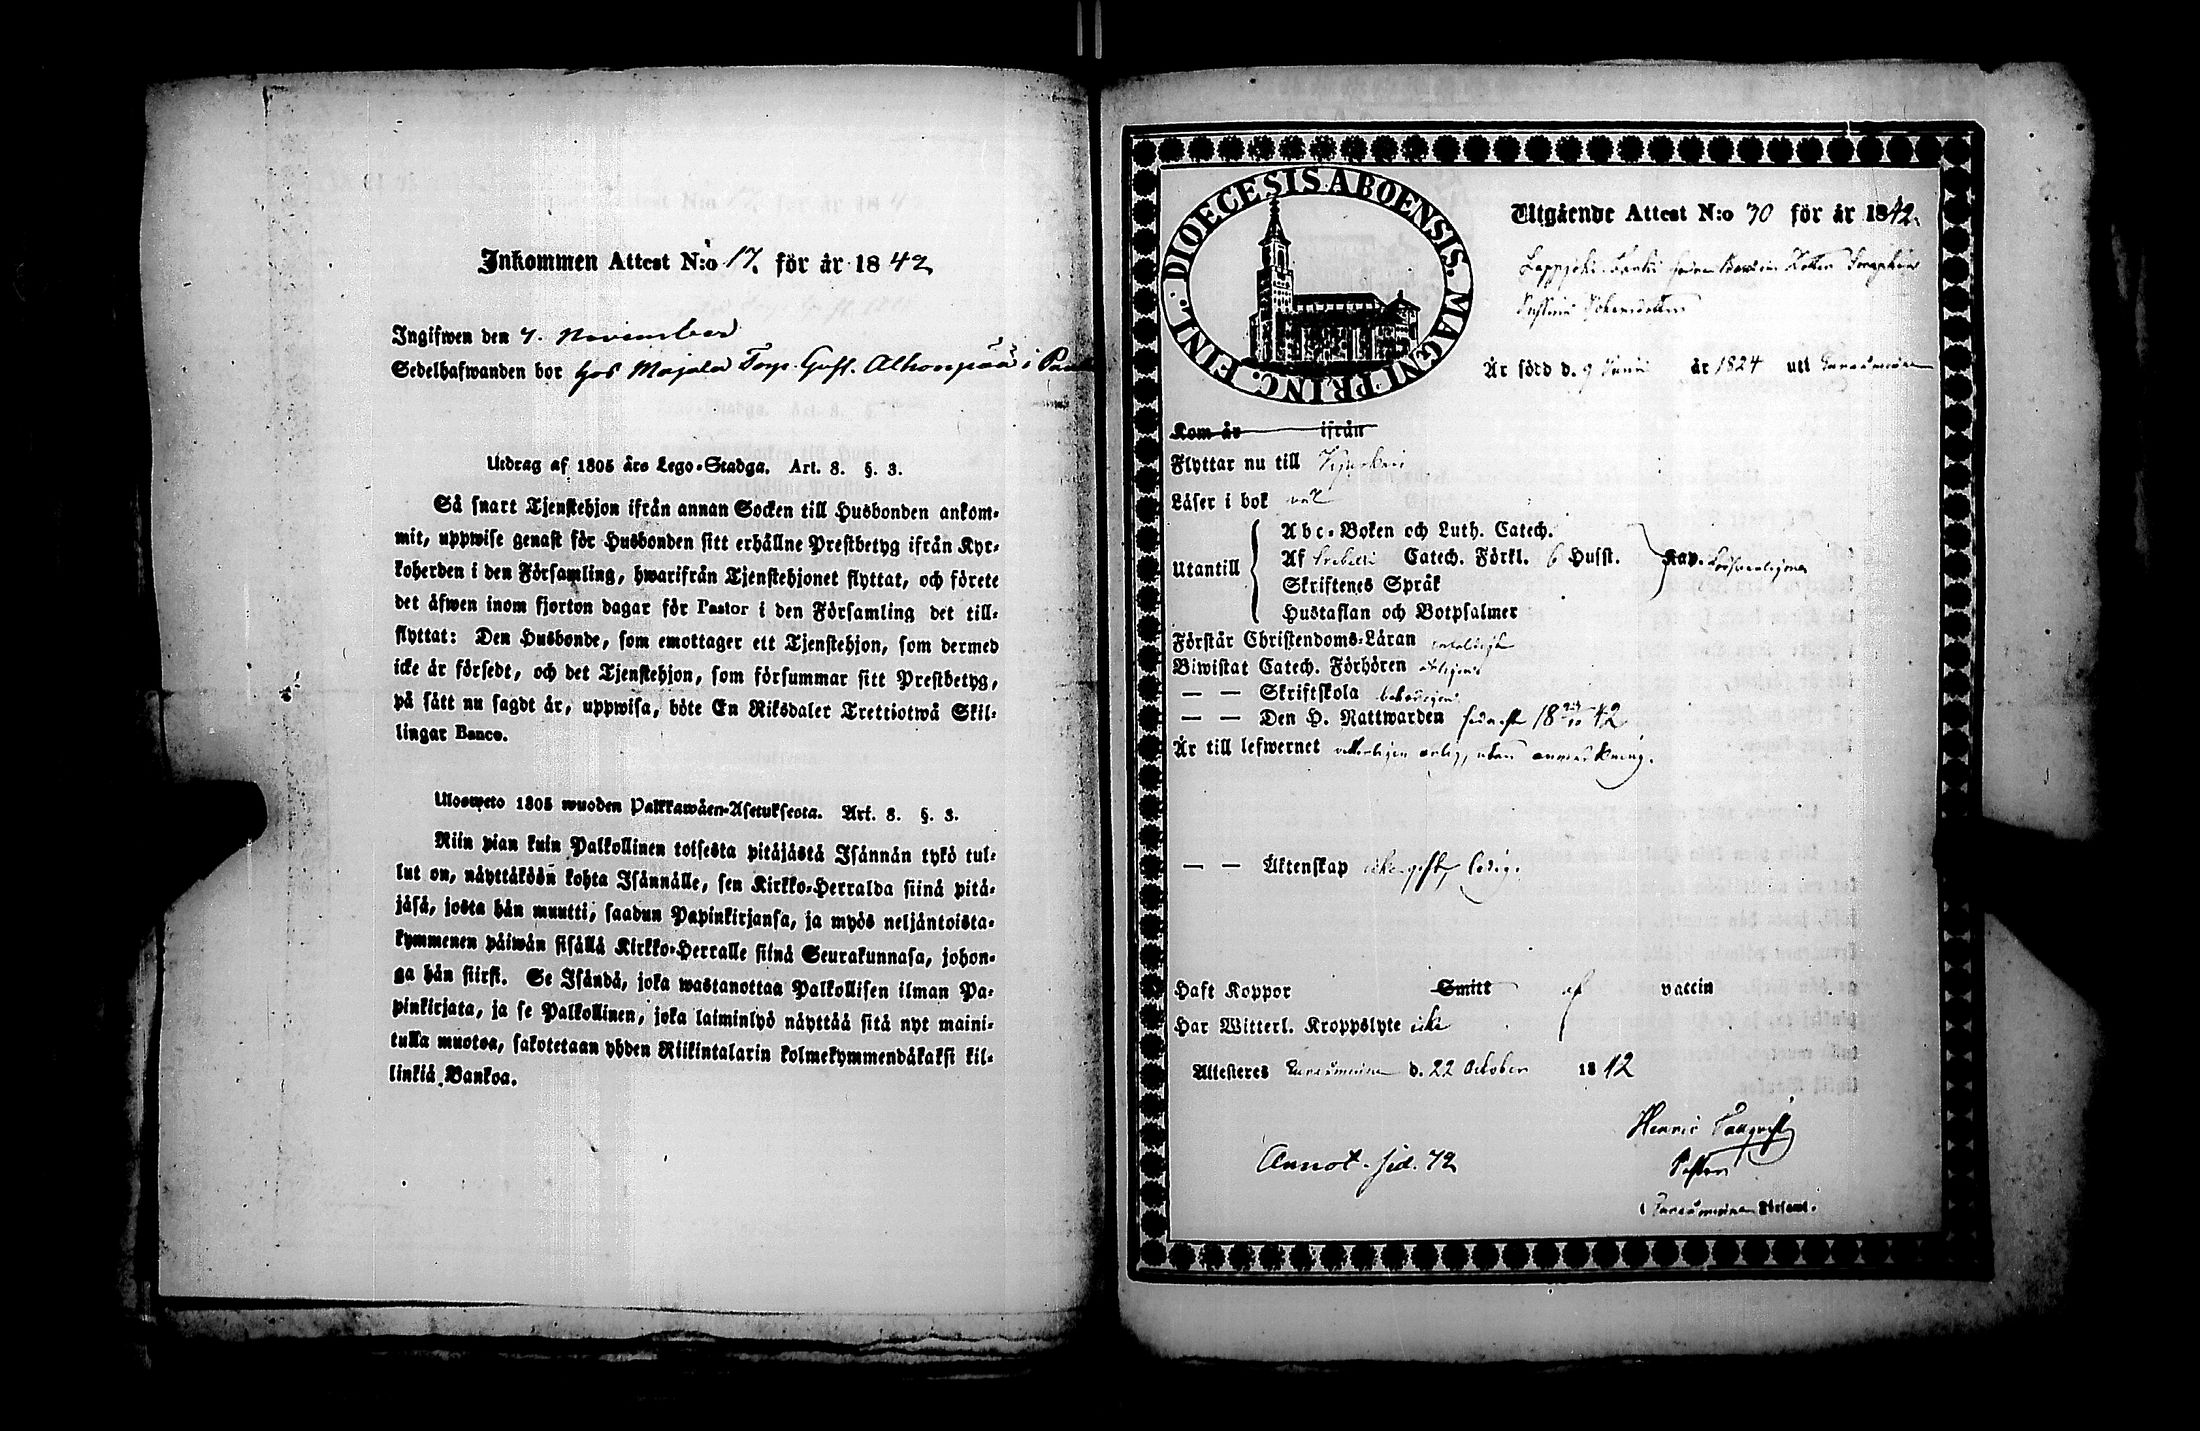 Inkommen Attest N:o 17. för år 1842
Ingifwen den 7. November
Sedelhafwanden bor hos Majala Torp. Gust. Alhonpää i
Utdrag af 1805 års Lego-Stadga. Art. 8. §. 3.
Så snart Tjenstehjon ifrån annan Socken till Husbonden ankom-
mit, uppwise genast för Husbonden sitt erhållne Prestbetyg ifrån Kyr-
koherden i den Församling, hwarifrån Tjenstehjonet flyttat, och förete
det äfwen inom fjorton dagar för Pastor i den Församling det till-
flyttat: Den Husbonde, som emottager ett Tjenstehjon, som dermed
icke är försedt, och det Tjenstehjon, som försummar sitt Prestbetyg,
på sätt nu sagdt är, uppwisa, böte En Riksdaler Trettiotwå Skil-
lingar Banco.
Ulosweto 1805 wuoden Palkkawäen-Asetuksesta. Art. 8. §. 3.
Niin pian kuin Palkollinen toisesta pitäjästä Isännän tykö tul-
lut on, näyttäköön kohta Isännälle, sen Kirkko-Herralda siinä pitä-
jäsä, josta hän muutti, saadun Papinkirjansa, ja myös neljäntoista-
kymmenen päiwän sisällä Kirkko-Herralle siinä Seurakunnasa, johon-
ga hän siirsi. Se Isändä, joka wastanottaa Palkollisen ilman Pa-
pinkirjata, ja se Palkollinen, joka laiminlyö näyttää sitä nyt maini-
tulla muotoa, sakotetaan yhden Riikintalarin kolmekymmendäkaksi kil-
lingiä Bankoa.
DIOECESIS ABOENSIS. MAGNI PRINC. FINL.
Utgående Attest N:o 70 för år 1842.
Är född d. 9 Junii år 1824 uti
Kom år ifrån
Flyttar nu till
Läser i bok väl
Utantill
Abc-Boken och Luth. Catech.
Af Catech. Förkl. 6 Husst. Kap.
Skriftenes Språk
Hustaflan och Botpsalmer
Förstår Christendoms-Läran
Biwistat Catech. Förhören
— — Skriftskola
— — Den H. Nattwarden sednast 18 42
Är till lefwernet ärlig, utan anmärkning.
— — Äktenskap icke gift, ledig.
Haft Koppor Smitt af vaccin
Har Witterl. Kroppslyte icke
Attesteres d. 22 October 1842
Henric
Pastor
Annot. sid. 72
i Församl.